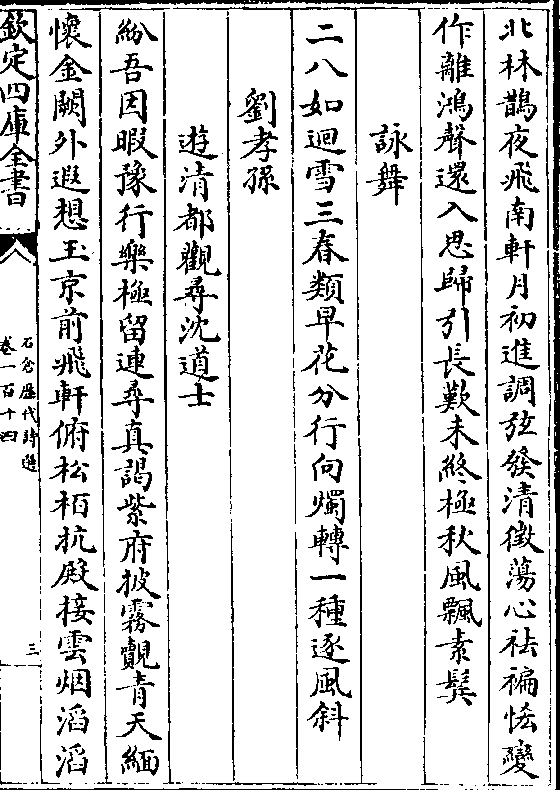 北林鵲夜飛南軒月初進調弦發清徵蕩心祛褊悋變
作離鴻聲還入思歸引長歎未終極秋風飄素髮
詠舞
二八如迴雪三春類早花分行向燭轉一種逐風斜
劉孝孫
遊清都觀尋沈道士
紛吾因暇豫行樂極留連尋真謁紫府披霧覿青天緬
懷金闕外遐想玉京前飛軒俯松栢抗殿接雲烟滔滔
欽定四庫全書
石倉歷代詩選
卷一百十四
三